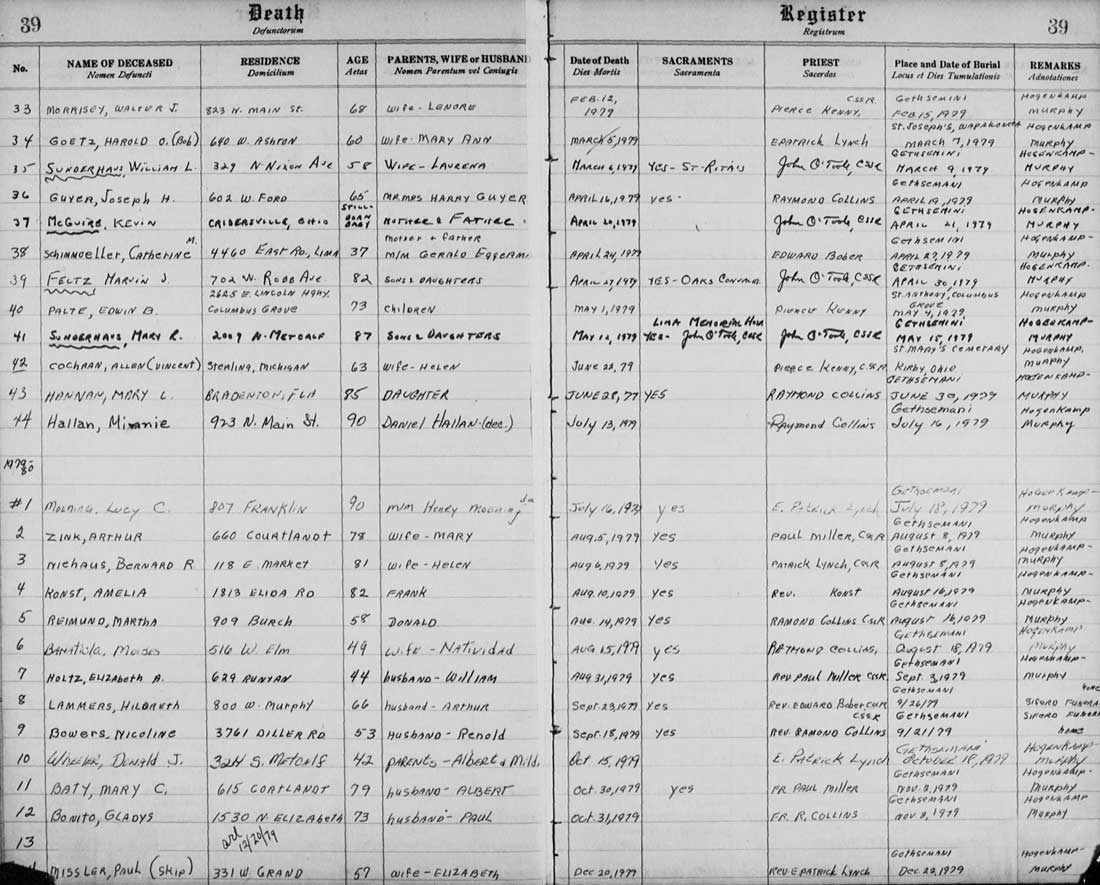 39 Death Register 39
Defunctorum Registrum
No. NAME OF DECEASED RESIDENCE AGE PARENTS, WIFE or HUSBAND Date of Death SACRAMENTS PRIEST Place and Date of Burial REMARKS
Nomen Defuncti Domicilium Aetas Nomen Parentum vel Coniugis Dies Mortis Sacramenta Sacerdos Locus et Dies Tumulationis Adnotationes
FEB. 12, CSSR Gethsemini Hogenkamp
33 MORRISEY, WALTER J. 823 N. MAIN ST. 68 Wife - LENORE 1979 PIERCE KENNY, FEB 15, 1979 MURPHY
St. Joseph's, WAPAKONETA HOGENKAMP
34 GOETZ, HAROLD O. (Bob) 640 W. ASHTON 60 Wife - MARY ANN MARCH 5, 1979 EPATRICK LYNCH MARCH 7, 1979 MURPHY
GETHSEMINI HOGENKAMP-
35 SUNDERHAUS, WILLIAM L. 329 N. NIXON AVE 58 WIFE - LAURENA MARCH 6, 1979 YES - ST. RITA'S John O'Toole, CSSR MARCH 9, 1979 MURPHY
GETHSEMANI HOGENKAMP
36 GUYER, JOSEPH H. 602 W. FORD 65 MR MRS HARRY GUYER APRIL 16, 1979 yes - RAYMOND COLLINS APRIL 19, 1979 MURPHY
STILL- GETHSEMINI HOGENKAMP-
37 McGUIRE, KEVIN CRIDERSVILLE, OHIO BORN BABY MOTHER & FATHER APRIL 20, 1979 John O'Toole, CSSR APRIL 21, 1979 MURPHY
M. mother + father Gethsemini Hogenkamp-
38 Schimmoeller, Catherine 4460 EAST RD, LIMA 37 M/M GERALD APRIL 24, 1979 EDWARD Bober APRIL 27, 1979 Murphy
GETHSEMINI HOGENKAMP-
39 FELTZ MARVIN J. 702 W. ROBB AVE. 82 SONS & DAUGHTERS APRIL 27, 1979 YES - OAKS John O'Toole, CSSR APRIL 30, 1979 MURPHY
2625 E. LINCOLN HGHY. ST. ANTHONY, COLUMBUS HOGENKAMP
40 PALTE, EDWIN B. COLUMBUS GROVE 73 CHILDREN MAY 1, 1979 PIERCE KENNY GROVE MAY 4, 1979 Murphy
LIMA MEMORIAL HOSP. GETHSEMINI HOGENKAMP-
41 SUNDERHAUS, MARY R. 2009 N. METCALF 87 SONS & DAUGHTERS MAY 12, 1979 YES - John O'Toole, CSSR John O'Toole, CSSR MAY 15, 1979 MURPHY
ST. MARY'S CEMETARY HOGENKAMP.
42 COCHRAN, ALLEN (VINCENT) STERLING, MICHIGAN 63 WIFE - HELEN JUNE 22, 79 PIERCE KENNY, C.SS.R. KIRBY, OHIO MURPHY
GETHSEMANI HOGENKAMP-
43 HANNAN, MARY L. BRADENTON, FLA 85 DAUGHTER JUNE 28, 79 YES RAYMOND COLLINS JUNE 30, 1979 MURPHY
Gethsemani Hogenkamp
44 Hallan, Minnie 923 N. Main St. 90 DANIEL HALLAN - (dec.) July 13, 1979 Raymond Collins July 16, 1979 Murphy
1979-
80
Gethsemani Hogenkamp-
#1 Mooning, Lucy C. 807 FRANKLIN 90 M/M Henry Mooning July 16, 1979 yes E. Patrick Lynch July 18, 1979 Murphy
Gethsemani Hogenkamp
2 ZINK, ARTHUR 660 COURTLANDT 78 Wife - MARY AUG. 5, 1979 yes PAUL MILLER, CSSR AUGUST 8, 1979 Murphy
Gethsemani Hogenkamp-
3 NIEHAUS, BERNARD R 118 E. MARKET 81 Wife - HELEN AUG 6, 1979 yes PATRICK LYNCH, CSSR AUGUST 8, 1979 Murphy
Gethsemani Hogenkamp-
4 KONST, AMELIA 1813 ELIDA RD 82 FRANK AUG. 10, 1979 yes Rev. Konst AUGUST 16, 1979 Murphy
Gethsemani Hogenkamp-
5 REIMUND, MARTHA 909 BURCH 58 DONALD AUG. 14, 1979 yes RAMOND COLLINS CSSR August 16, 1979 Murphy
Gethsemani Hogenkamp
6 Moises 516 W. Elm 49 Wife - Natividad AUG 15, 1979 yes RAYMOND COLLINS, August 18, 1979 Murphy
Gethsemani Hogenkamp-
7 HOLTZ, ELIZABETH A. 629 RUNYAN 44 husband - William AUG 31, 1979 yes REV. PAUL MILLER CSSR. Sept. 3, 1979 Murphy
Gethsemani home
8 LAMMERS, HILDRETH 800 W. Murphy 66 husband - ARTHUR Sept. 23, 1979 yes REV. EDWARD Bober, CSSR 9/26/79 SIFERD FUNERAL
CSSR Gethsemani SIFERD FUNERAL
9 Bowers, Nicoline 3761 DILLER RD 53 Husband - Renold Sept. 18, 1979 yes REV. RAMOND COLLINS 9/21/79 home
Gethsemani Hogenkamp-
10 Wheeler, Donald J. 324 S. Metcalf 42 PARENTS - Albert & Mild. Oct 15, 1979 E. Patrick Lynch October 18, 1979 Murphy
Gethsemani Hogenkamp-
11 BATY, MARY C. 615 CORTLANDT 79 husband - ALBERT Oct. 30, 1979 yes FR. PAUL Miller Nov. 2, 1979 Murphy
Gethsemani Hogenkamp
12 BONITO, GLADYS 1530 N. ELIZABETH 73 husband - PAUL Oct. 31, 1979 FR. R. COLLINS Nov 3, 1979 Murphy
13 12/20/79
Gethsemani Hogenkamp-
MISSLER, PAUL (SKIP) 331 W. GRAND 57 wife - ELIZABETH Dec 20, 1979 REV. E PATRICK LYNCH Dec 22, 1979 MURPHY